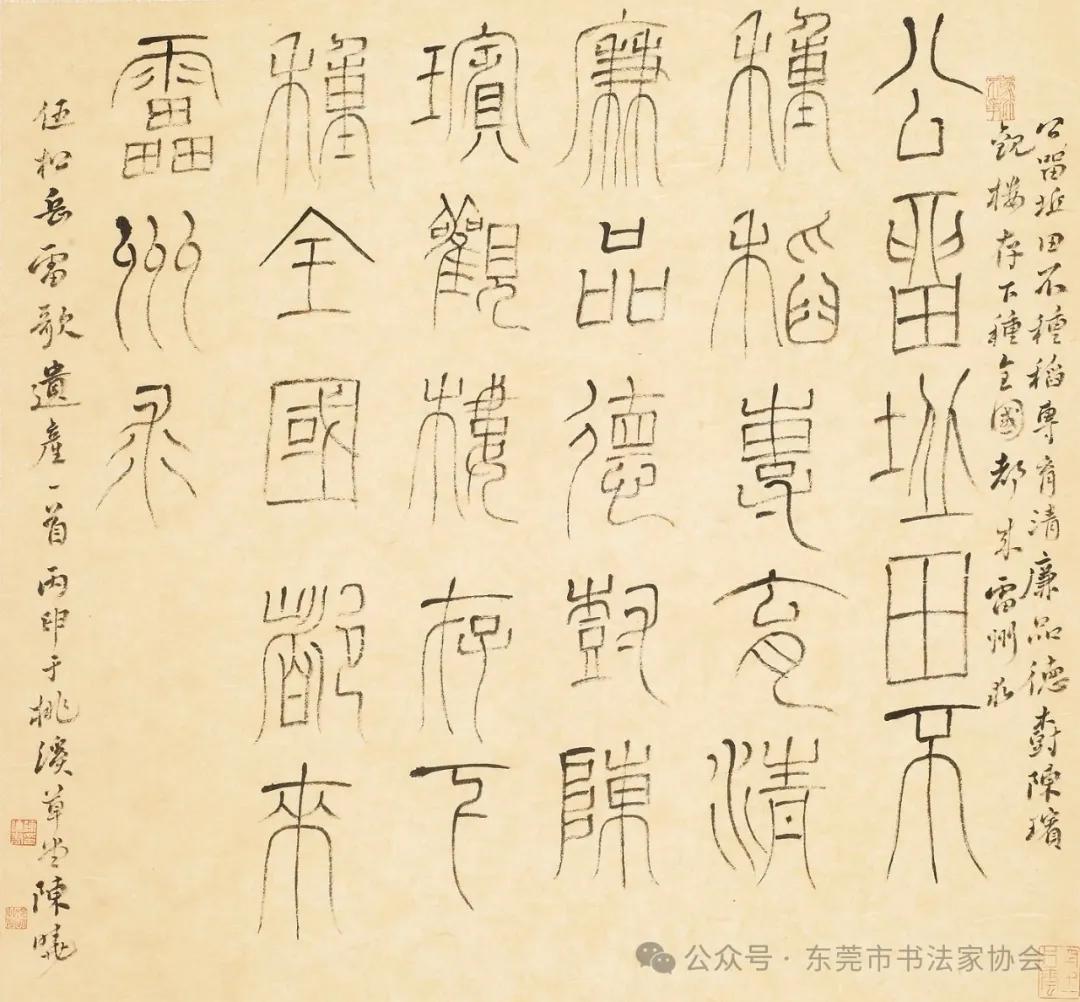 公留坵田不種稻專育清廉品德尌陳璸
觀楼存下種全國都来雷州求
公畱坵田不
種稻專育清
廉品德尌陳
璸觀樓存下
種全國都來
靁州求
伍松岳雷歌遺產一首丙申于桃溪草堂陳曉
公众号·东莞市书法家协会